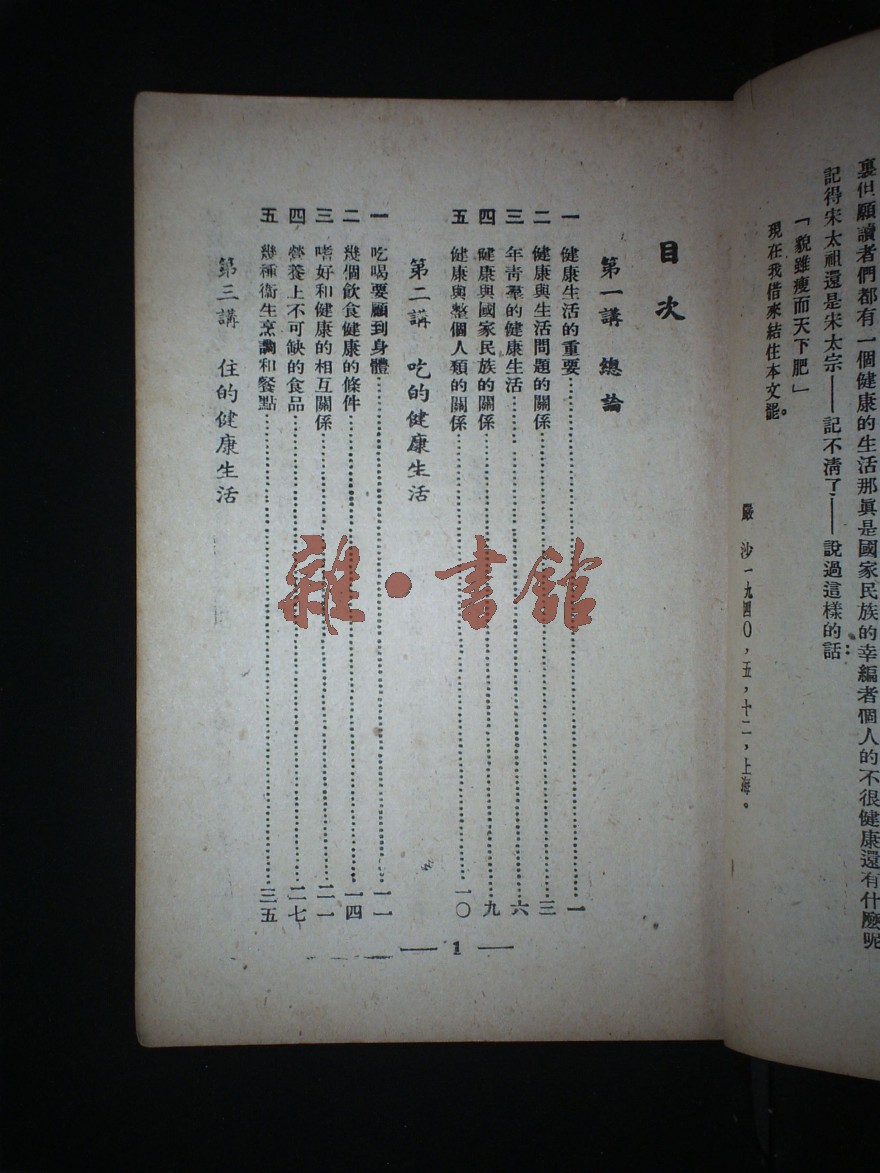 裏但願讀者們都有一個健康的生活那眞是國家民族的幸編者個人的不很健康還有什麼呢
記得宋太祖還是宋太宗——記不清了——說過這樣的話：
「貌雖瘦而天下肥」
現在我借來結住本文罷。
嚴 沙一九四〇，五，十二，上海。
目次
第一講 總論
一 健康生活的重要……一
二 健康與生活問題的關係……三
三 年靑羣的健康生活……六
四 健康與國家民族的關係……九
五 健康與整個人類的關係……一〇
第二講 吃的健康生活
一 吃喝要顧到身體……一一
二 幾個飲食健康的條件……一四
三 嗜好和健康的相互關係……二一
四 營養上不可缺的食品……二七
五 幾種衞生烹調和餐點……三五
第三講 住的健康生活
— 1 —
雜·書館